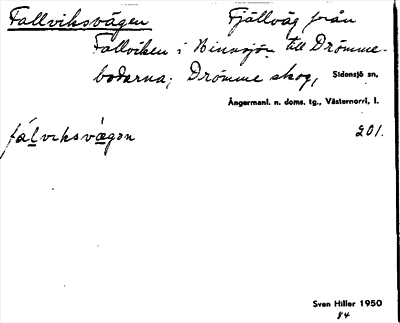 Fallviksvägen Fjällväg från
Fallviken i Binnsjön till Drömme-
bodarna; Drömme skog, Sidensjö sn,
Ångermanl. n. doms. tg., Västernorrl, l.
fálviksvägen 201.
Sven Hiller 1950
84